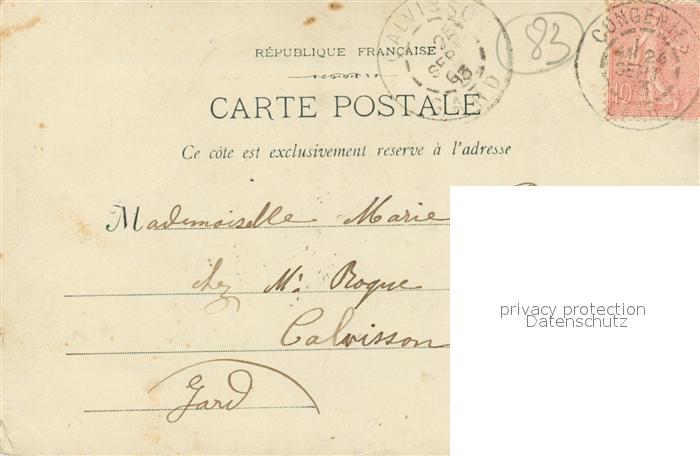 83
RÉPUBLIQUE FRANÇAISE
CARTE POSTALE
Ce côte est exclusivement reserve à l'adresse
CALVISSON
GARD
CONGENIES
10
Mademoiselle Marie
chez Mr Roque
Calvisson
Gard
privacy protection
Datenschutz